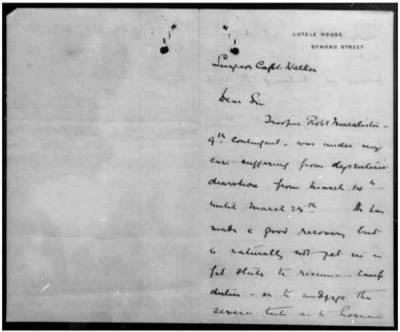 LUTELE HOUSE.
SYMOND STREET
Surgeon Capt. Waller
Dear Sir
Trooper Robt Macalister -
9th Contingent - was under my
care suffering from dysenteric
diarrhoea from March 14th
until March 29th. He has
made a good recovery but
is naturally not yet in a
fit state to resume camp
duties - or to undergo the
severe tests as to horse